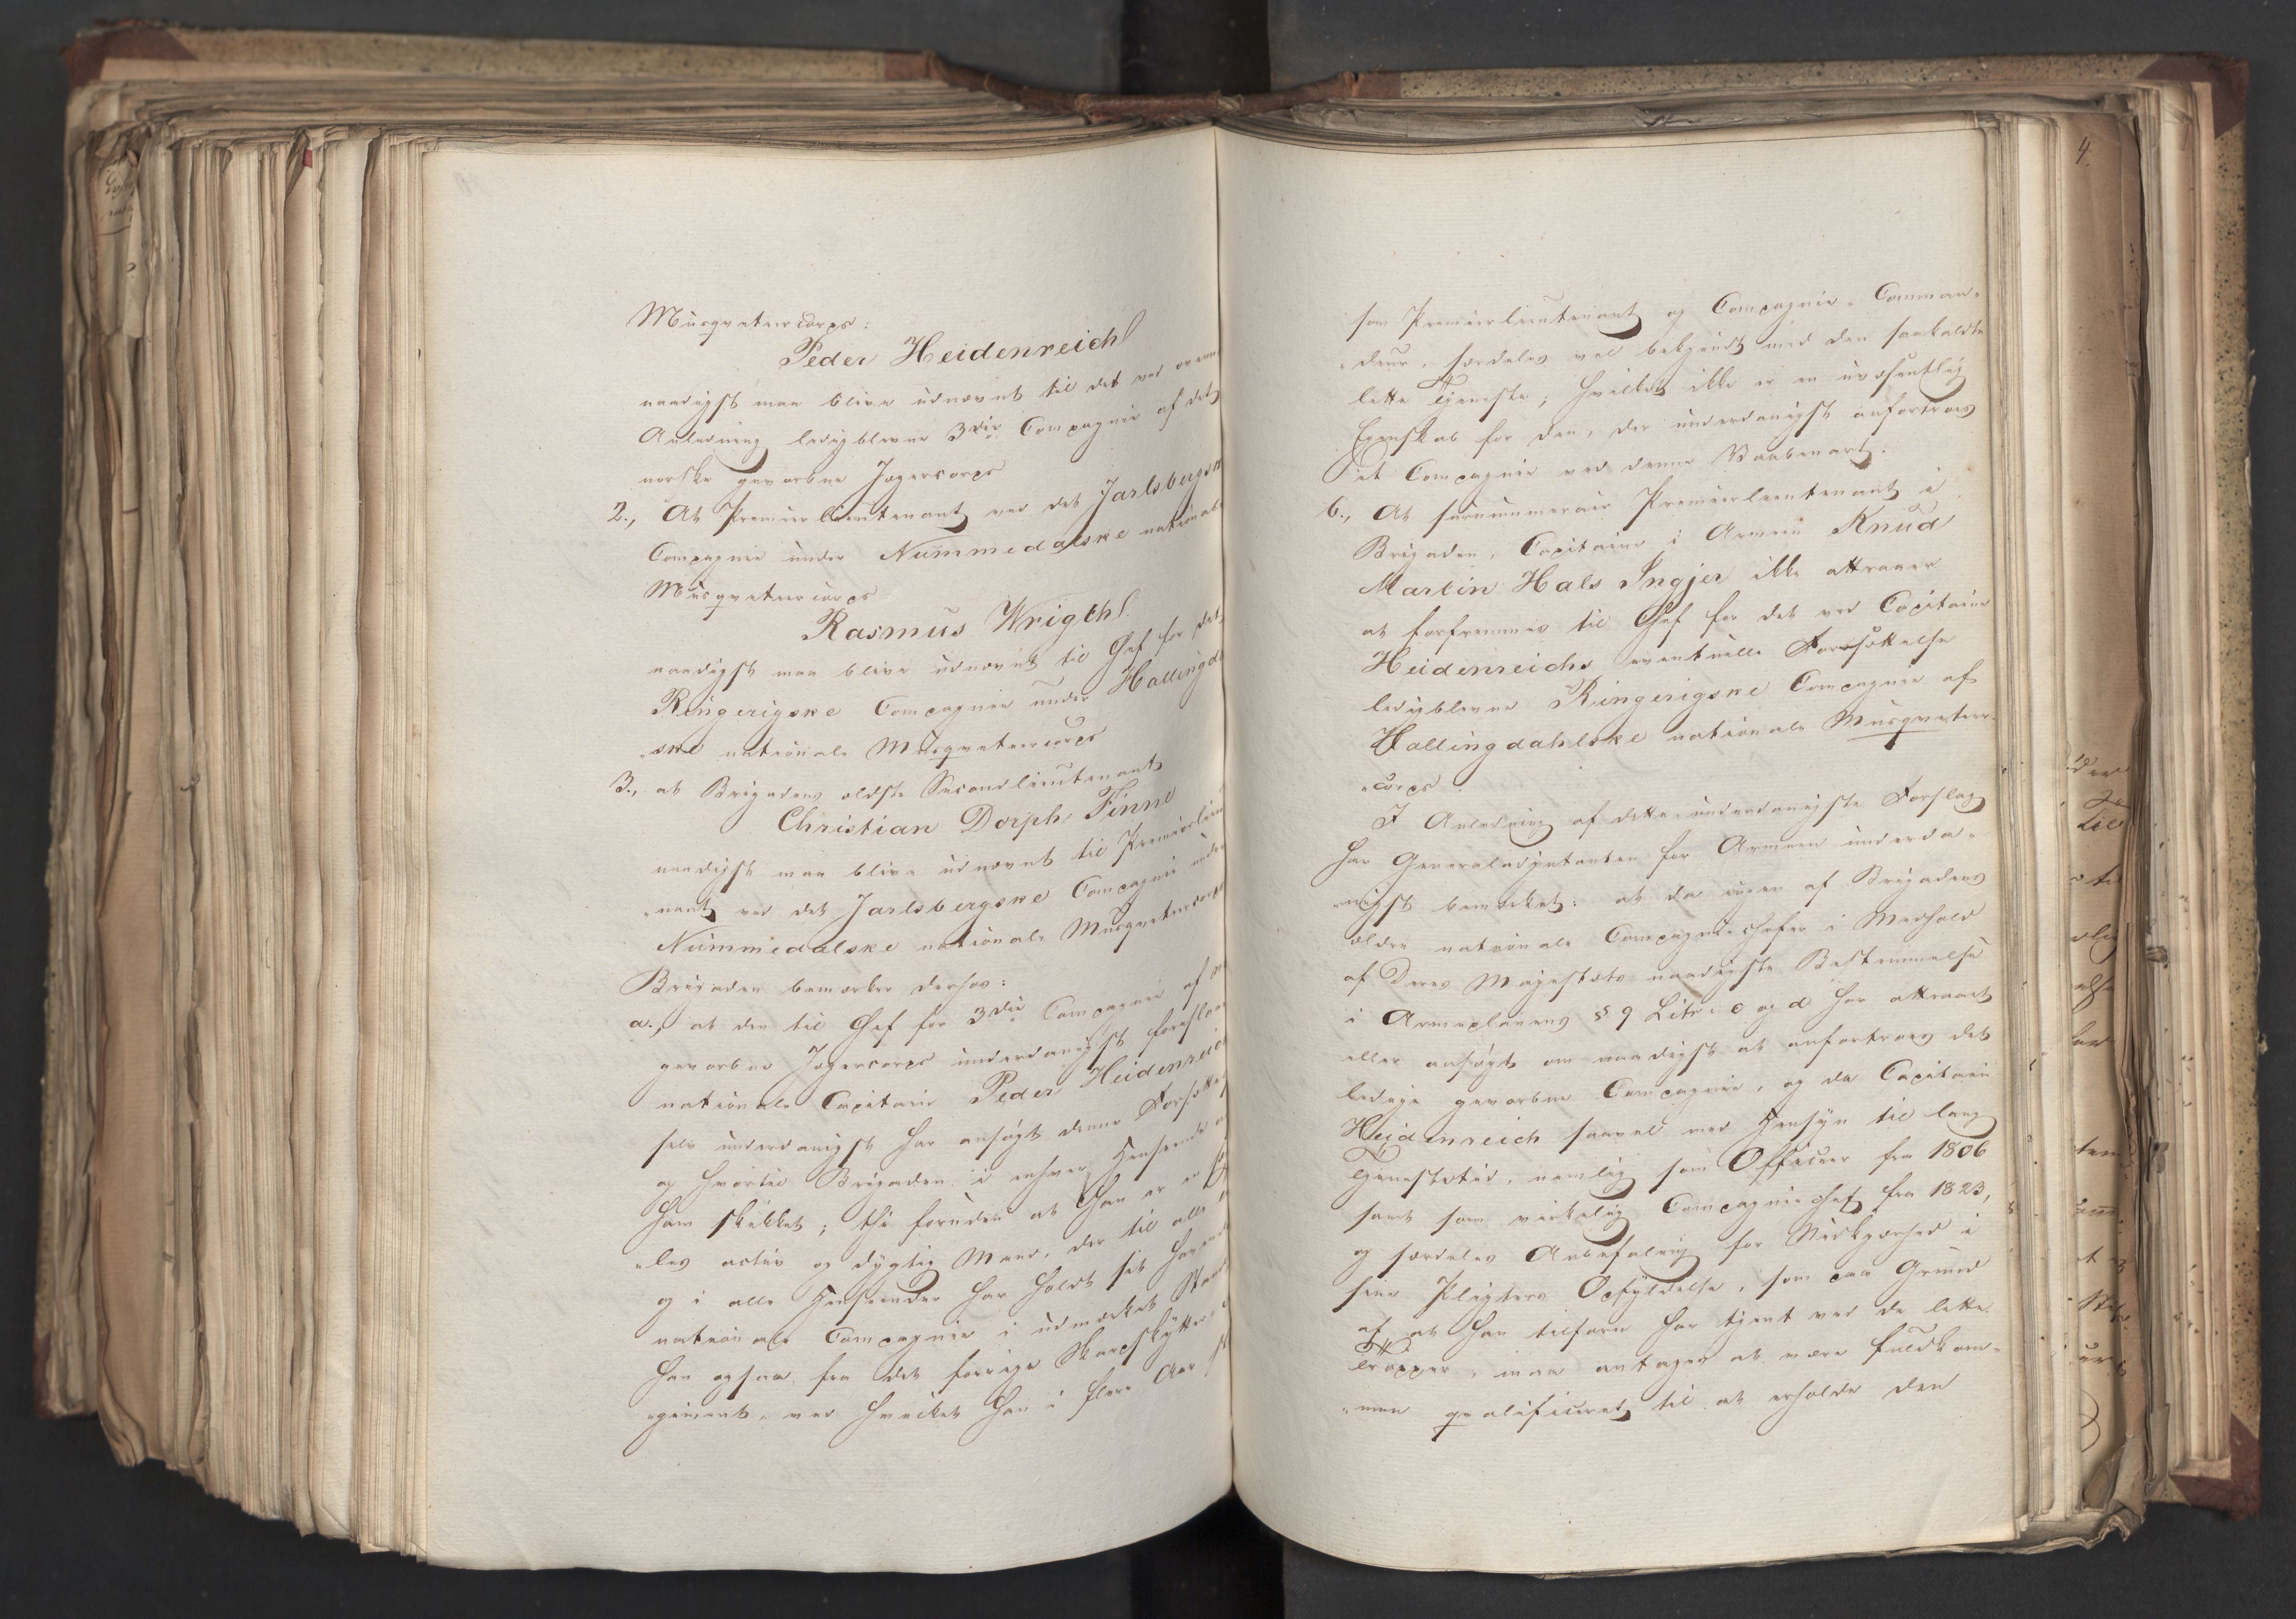 Musqveteercorps:
Peder Heidenreich
naadigst maa blive udnævnt til det ved ovenn
Anledning ledigblevne 3die Compagnie af det
norske gevorbne Jægercorps
2., At Premierlieutenant ved det Jarlsbergsk
Compagnie under Nummedalske national
Musqveteercorps
Rasmus Wrigth
naadigst maa blive udnævnt til Chef for det
Ringerigske Compagnie under Hallingda
„ske nationale Musqveteercorps
3., at Brigadens ældste Secondlieutenant
Christian Dorph Finne
naadigst maa blive udnævnt til Premierlieu
„nant ved det Jarlsbergske Compagnie under
Nummedalske nationale Musqveteercorps
Brigaden bemærker derhos:
a., at den til Chef for 3die Compagnie af n
gevorbne Jægercorps underdanigst foreslaae
nationale Capitaine Peder Heidenreich
selv underdanigst har ansøgt denne Forsættel
og hvortil Brigaden i enhver Henseende an
ham skikket; thi foruden at han er en
„les activ og dygtig Mand, der til alle
og i alle Henseender har holdt sit havende
nationale Compagnie i udmærket Stand
han ogsaa fra det forrige Skarpskytter
„giment, ved hvilket han i flere Aar
som Premierlieutenant og Compagnie-Comman„
„deur, særdeles vel bekjendt med den saakaldte
lette Tjeneste; hvilket ikke er en uvæsentlig
Egenskab for den, der underdanigst anfortroes
et Compagnie ved denne Vaabenart.
b., At surnummerair Premierlieutenant i
Brigaden, Capitaine i Armeen Knud
Martin Hals Ingjer ikke attraaer
at forfremmes til Chef for det ved Capitaine
Heidenreichs eventuelle Forsættelse
ledigblevne Ringerigske Compagnie af
Hallingdahlske nationale Musqveteer„
„corps.
I Anledning af dette underdanigste Forslag
har Generaladjutanten for Armeen underda„
„nigst bemærket: at da ingen af Brigadens
ældre nationale Compagniechefer i Medhold
af Deres Majestæts naadigste Bestemmelse
i Armeplanens § 9 Litr: c og d har attraaet
eller ansøgt om naadigst at anfortroes det
ledige gevorbne Compagnie, og da Capitain
Heidenreich saavel med Hensyn til lang
Tjenestetid, nemlig som Officeer fra 1806
samt som virkelig Compagniechef fra 1823,
og særdeles Anbefaling for Nidkjærhed i
sine Pligters Opfyldelse, som paa Grund
af, at han tilforn har tjent ved de lette
Tropper, maa antages at være fuldkom„
„men qvalificeret til at erholde den
4.